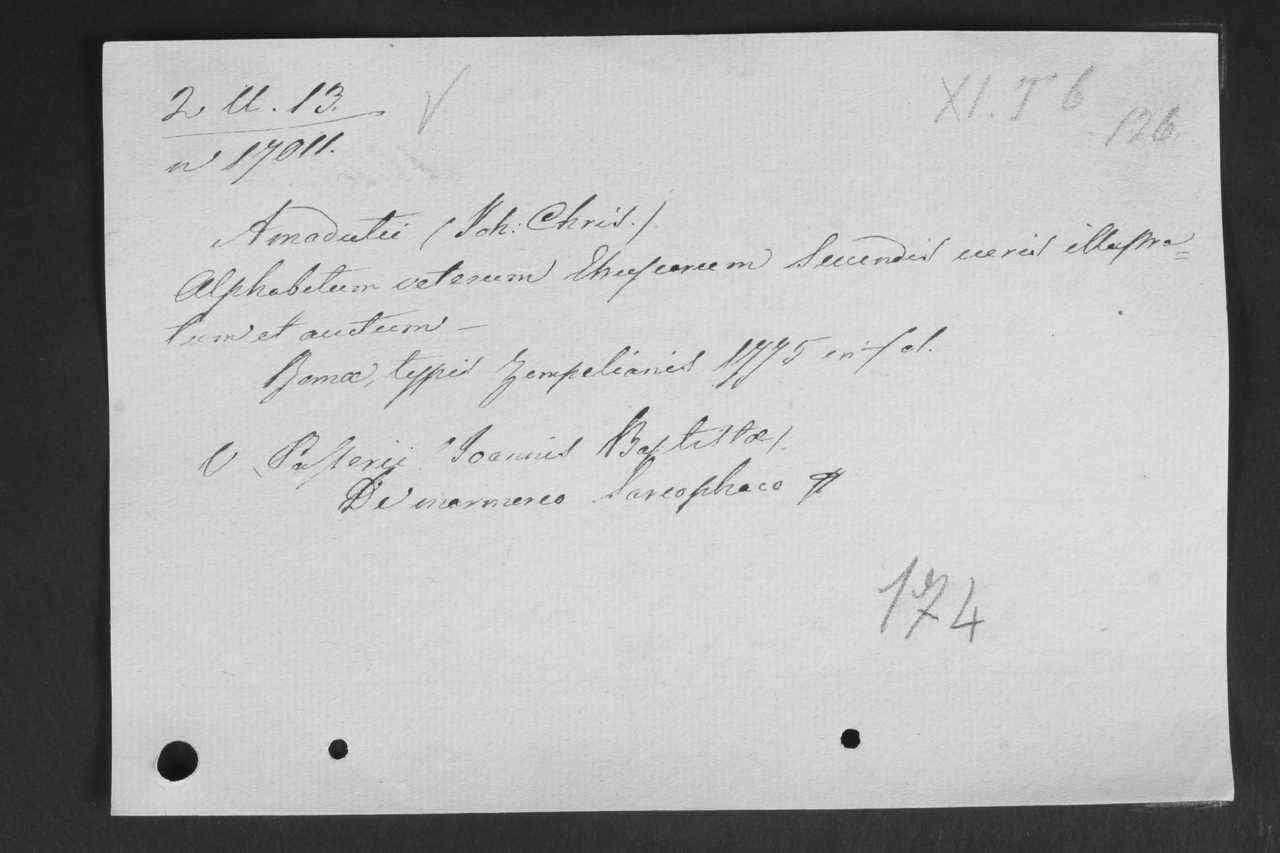 2 U. 13. √ XI. T 6
126.
n 17011.
Amadutii (Joh: Chris.)
Alphabetum veterum Etruscorum Secundis curis illustra=
tum et auctum —
Romæ, typis Zempelianis 1775 in fol.
V Passerii Joannis Baptistæ).
De marmoreo Sarcophaco
174